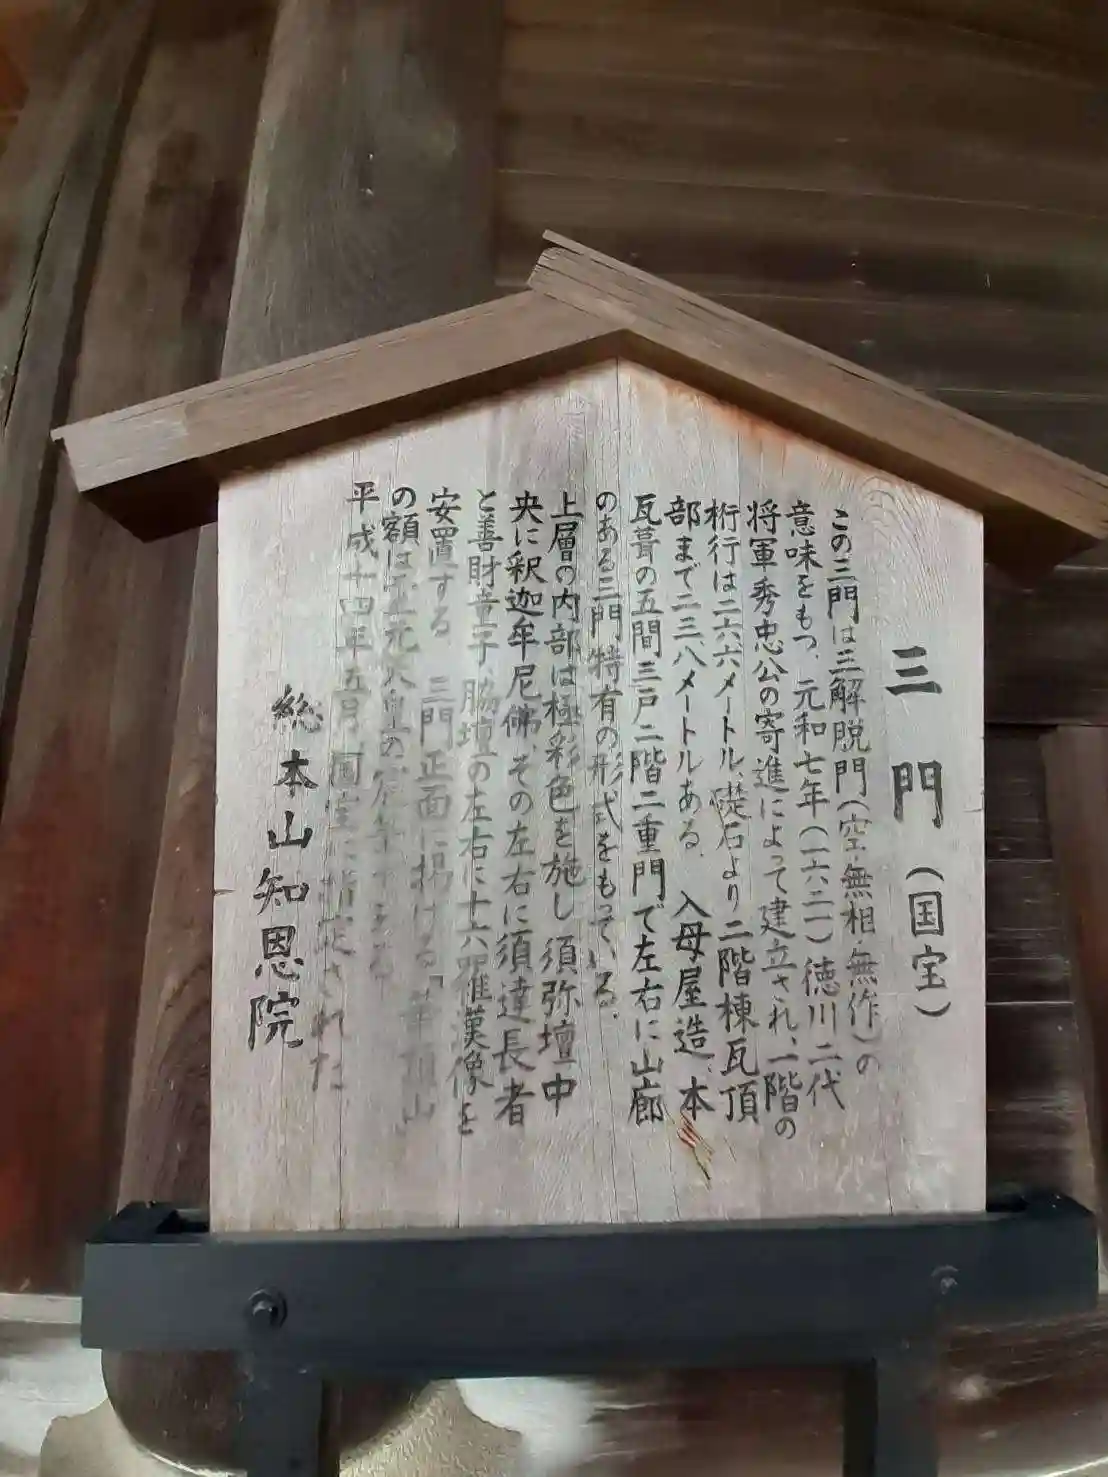 三門（国宝）
この三門は三解脱門（空・無相・無作）の
意味をもつ、元和七年（一六二一）徳川二代
将軍秀忠公の寄進によって建立され、一階の
桁行は二六六メートル、礎石より二階棟瓦頂
部まで二三八メートルある。入母屋造、本
瓦葺の五間三戸二階二重門で左右に山廊
のある三門特有の形式をもっている。
上層の内部は極彩色を施し須弥壇中
央に釈迦牟尼佛、その左右に須達長者
と善財童子、脇壇の左右に十六羅漢像を
安置する 三門正面に掲げる「華頂山
の額は霊元天皇の宸筆である
平成十四年五月、国宝に指定された
総本山知恩院